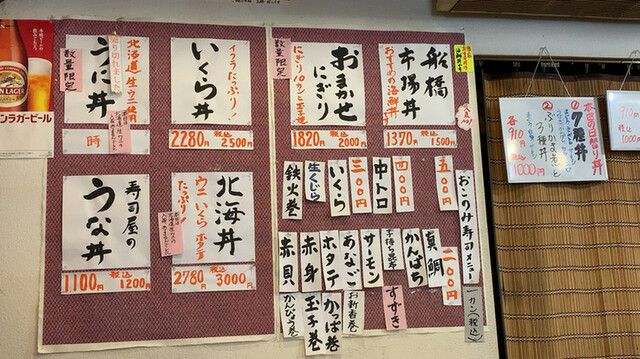 船橋
市場丼
おすすめの海鮮丼
1370円 税込 1500円
数量限定
おまかせ
にぎり
にぎり10カンと玉子焼
1820円 税込 2000円
イクラたっぷり!
いくら丼
2280円 税込 2500円
北海道生ウニ使用
うに丼
数量限定
売り切れました
時
北海丼
ウニいくらホタテ
たっぷり!
2780円 税込 3000円
寿司屋の
うな丼
1100円 税込 1200円
おこのみ寿司メニュー
一カン(税込)
五〇〇円
四〇〇円
中トロ
三〇〇円
いくら
生くじら
鉄火巻
二〇〇円
真鯛
かんぱち
子持ち昆布
すずき
サーモン
あなご
ホタテ
赤身
赤貝
お新香巻
かっぱ巻
玉子巻
かんぴょう巻
本日の日替り丼
① 7種丼
②
3種丼
各910円
税込
1000円
ラガービール